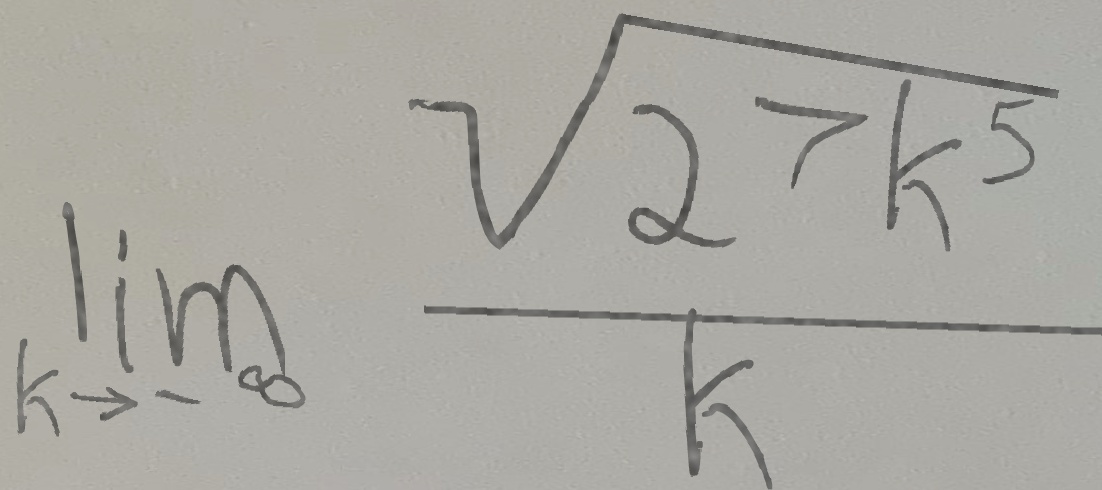 \lim_{k \to -\infty} \frac{\sqrt{2^7 k^5}}{k}